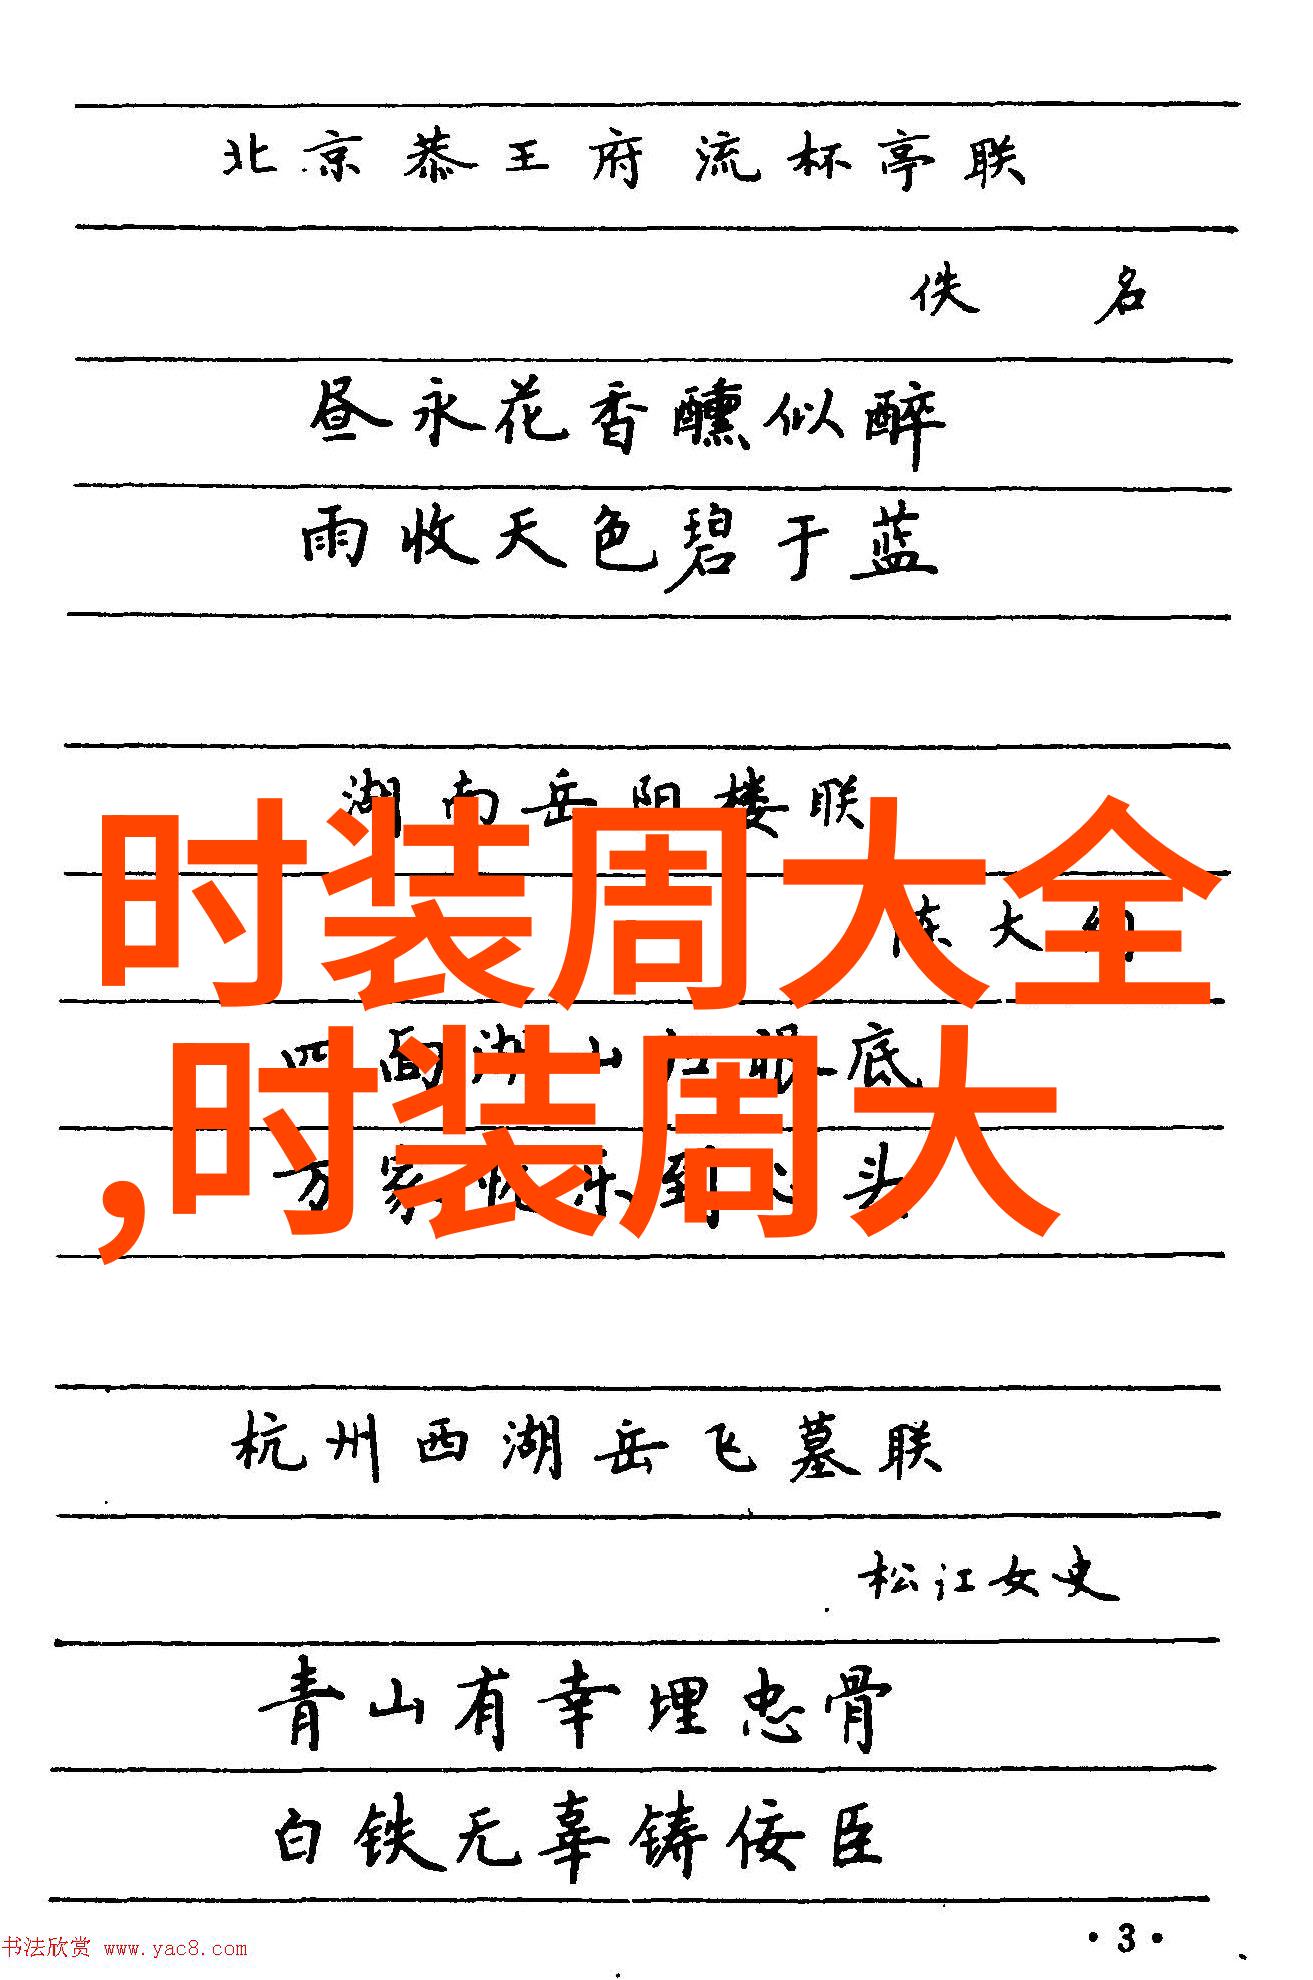 北京恭王府流杯亭联
佚名
昼永花香醺似醉
雨收天色碧于蓝
湖南岳阳楼联
时装周大全
大
面湖山 眼底
,时装周大
万家 乐到 头
杭州西湖岳飞墓联
松江女史
青山有幸埋忠骨
白铁无辜铸佞臣
·3·
书法欣赏 www.yac8.com